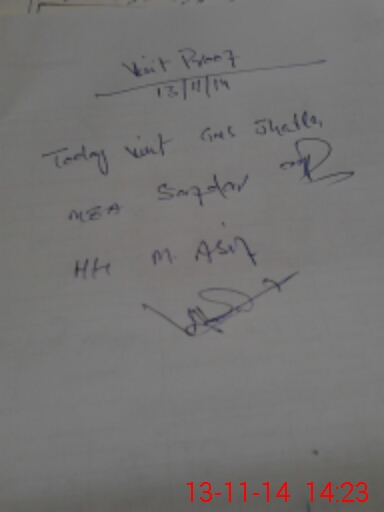 Visit Proof
13/11/14
Today visit GMS Jhatla,
MEA Safdar
HH M. Asif
13-11-14 14:23